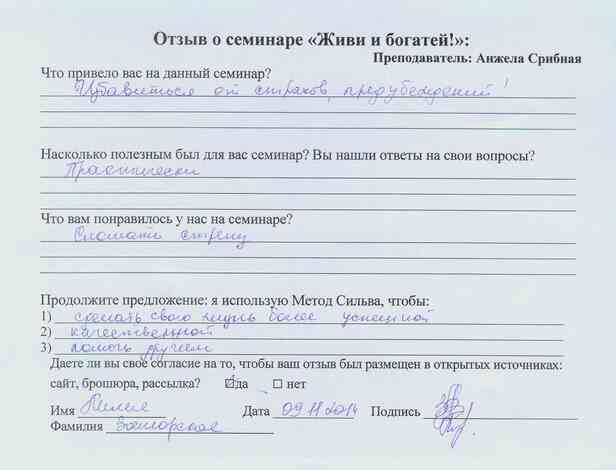 Отзыв о семинаре «Живи и богатей!»:
Преподаватель: Анжела Срибная
Что привело вас на данный семинар?
Избавиться от страхов, предубеждений!
Насколько полезным был для вас семинар? Вы нашли ответы на свои вопросы?
Практически
Что вам понравилось у нас на семинаре?
Сломать стрелу
Продолжите предложение: я использую Метод Сильва, чтобы:
1) сделать свою жизнь более успешной
2) качественной
3) помочь другим
Даете ли вы своё согласие на то, чтобы ваш отзыв был размещен в открытых источниках:
сайт, брошюра, рассылка? ☑да ☐ нет
Имя Лилия Дата 09.11.2014 Подпись
Фамилия